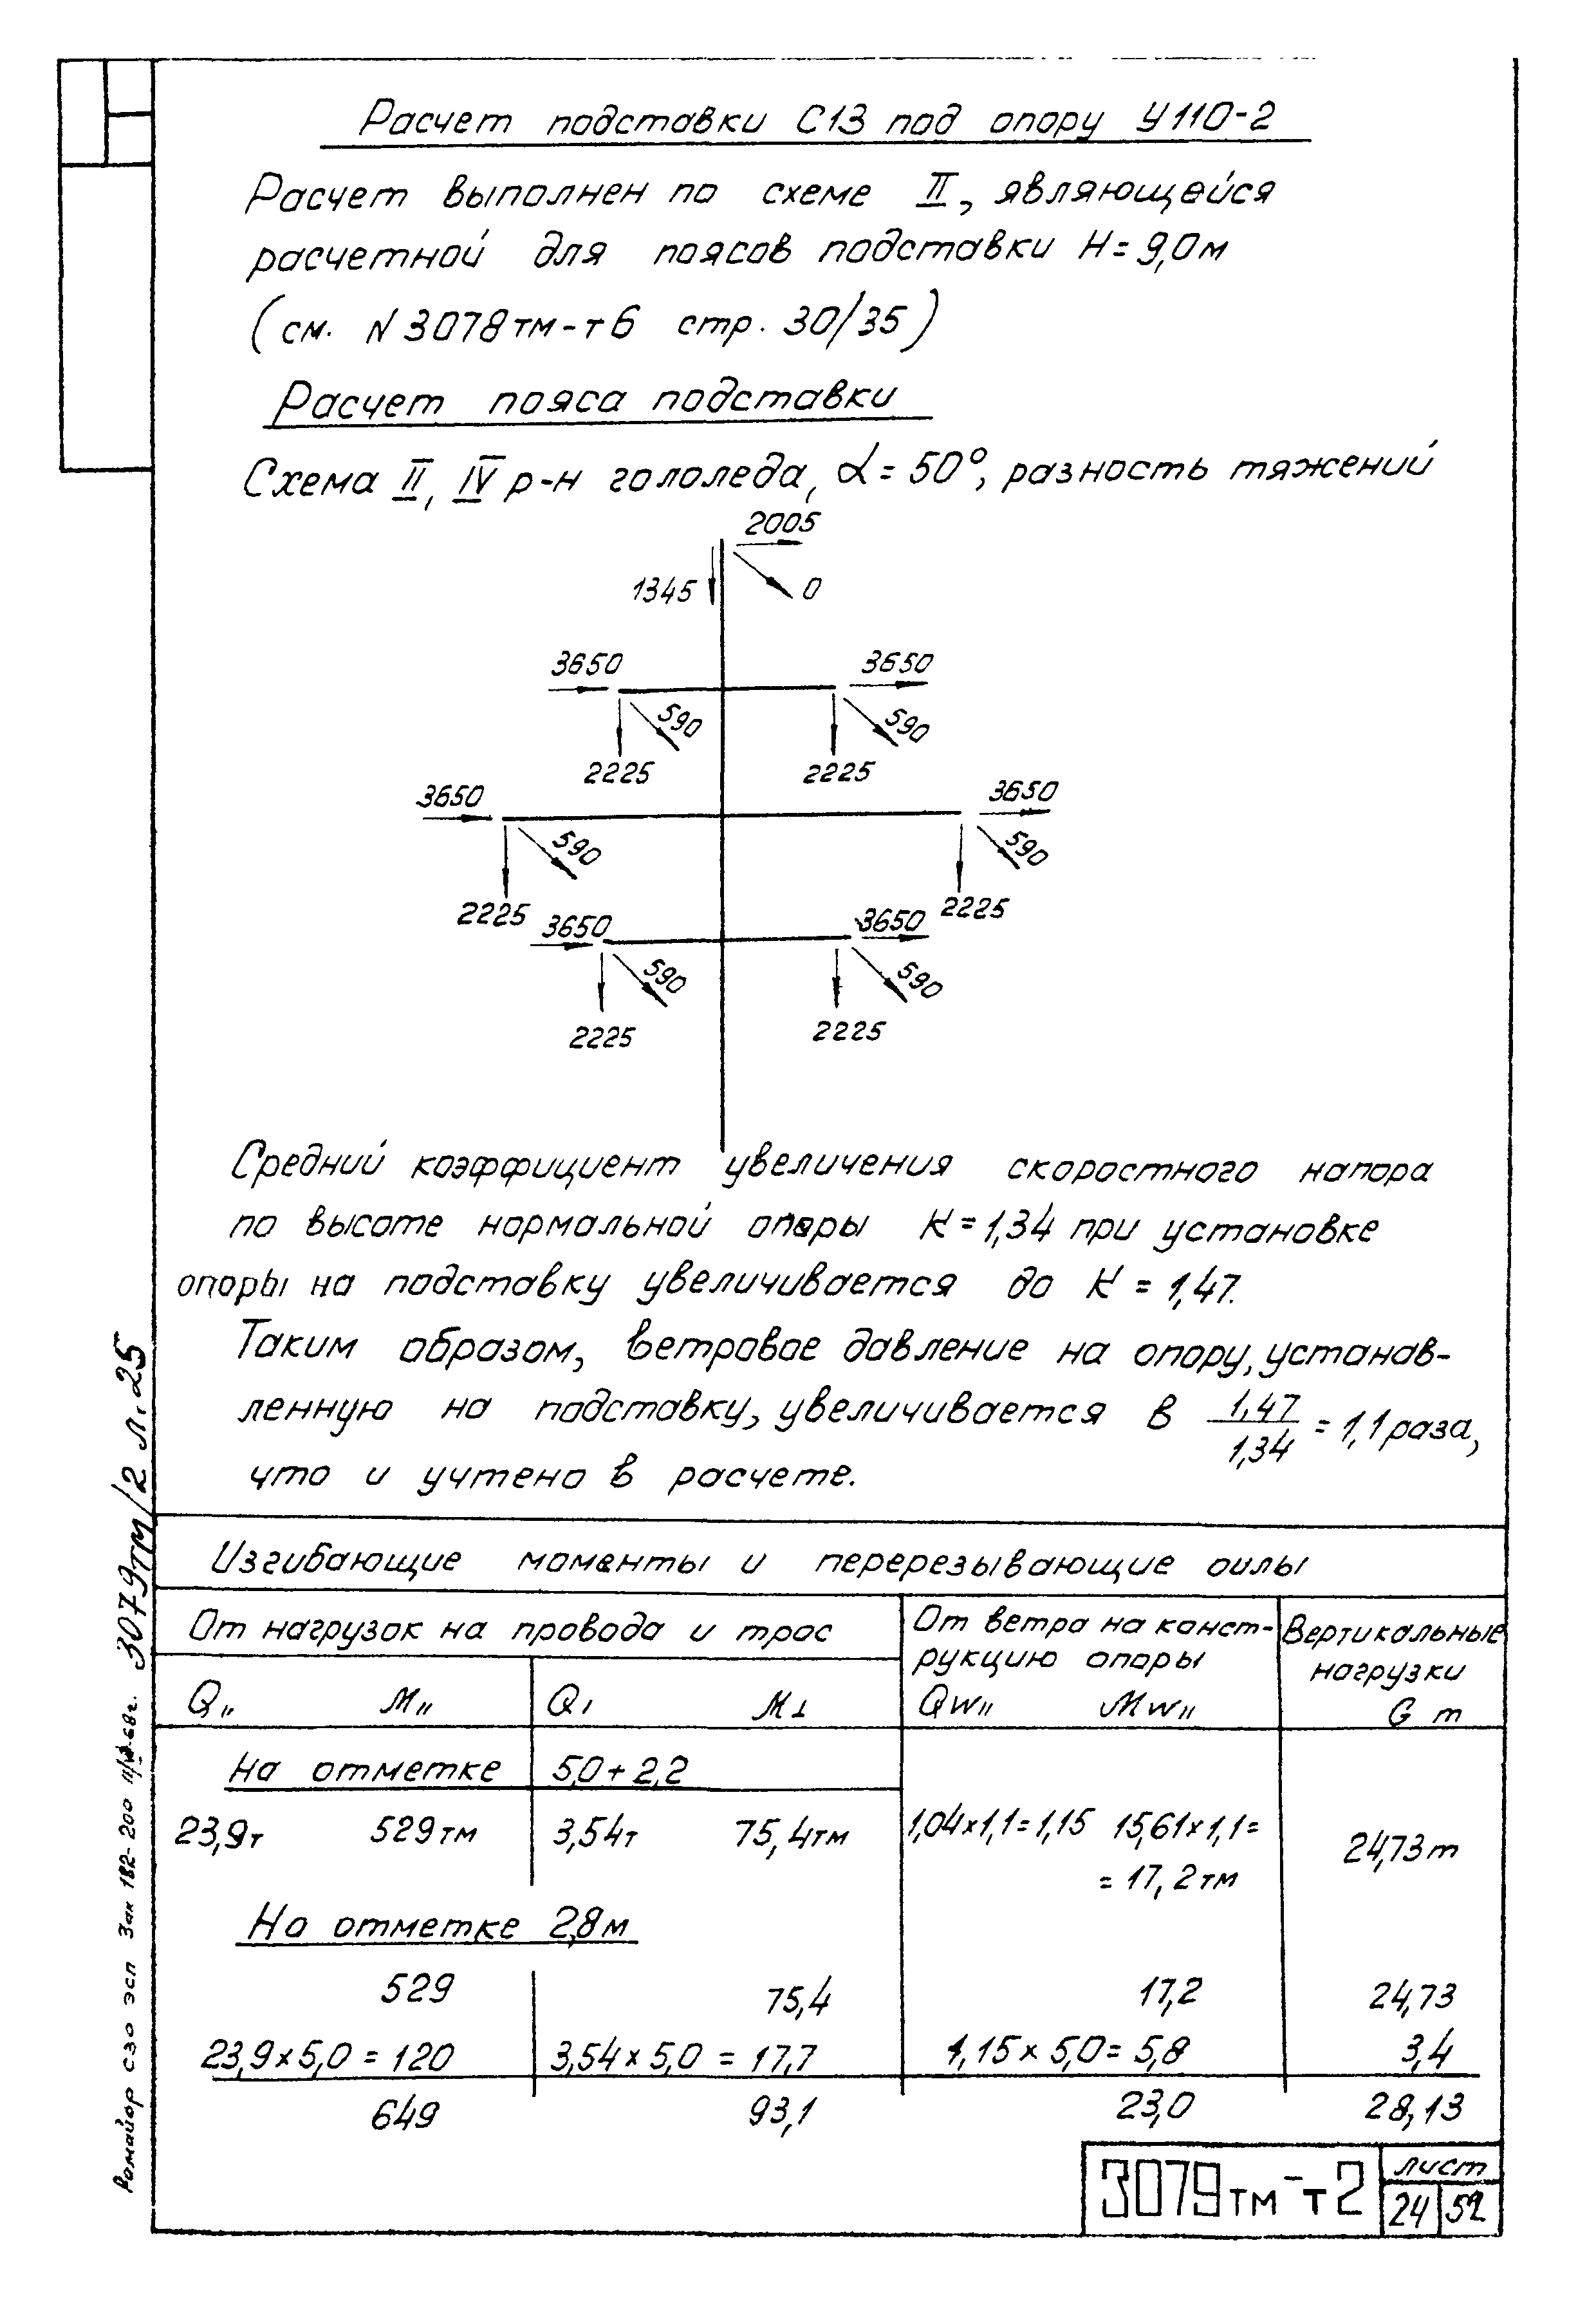 Расчет подставки С13 под опору У110-2
Расчет выполнен по схеме II, являющейся
расчетной для поясов подставки Н=9,0м
(см. N3078тм-т6 стр. 30/35)
Расчет пояса подставки
Схема II, IV р-н гололеда, α=50°, разность тяжений
2005
1345
0
3650
3650
590
590
2225
2225
3650
3650
590
590
2225
2225
3650
3650
590
590
2225
2225
Средний коэффициент увеличения скоростного напора
по высоте нормальной опоры К=1,34 при установке
опоры на подставку увеличивается до К=1,47.
Таким образом, ветровое давление на опору, установ-
ленную на подставку, увеличивается в 1,47/1,34 = 1,1 раза,
что и учтено в расчете.
Изгибающие моменты и перерезывающие силы
От нагрузок на провода и трос
От ветра на конст-
рукцию опоры
Вертикальные
нагрузки
G т
Q" M" Q⊥ M⊥ Qw" Mw"
На отметке 5,0+2,2
23,9т 529тм 3,54т 75,4тм 1,04×1,1=1,15 15,61×1,1= 24,73т
=17,2тм
На отметке 2,8м
529 75,4 17,2 24,73
23,9×5,0=120 3,54×5,0=17,7 1,15×5,0=5,8 3,4
649 93,1 23,0 28,13
3079тм-т2
лист
24 52
3079тм/2 л.25
сзо эсп Зак 182-200